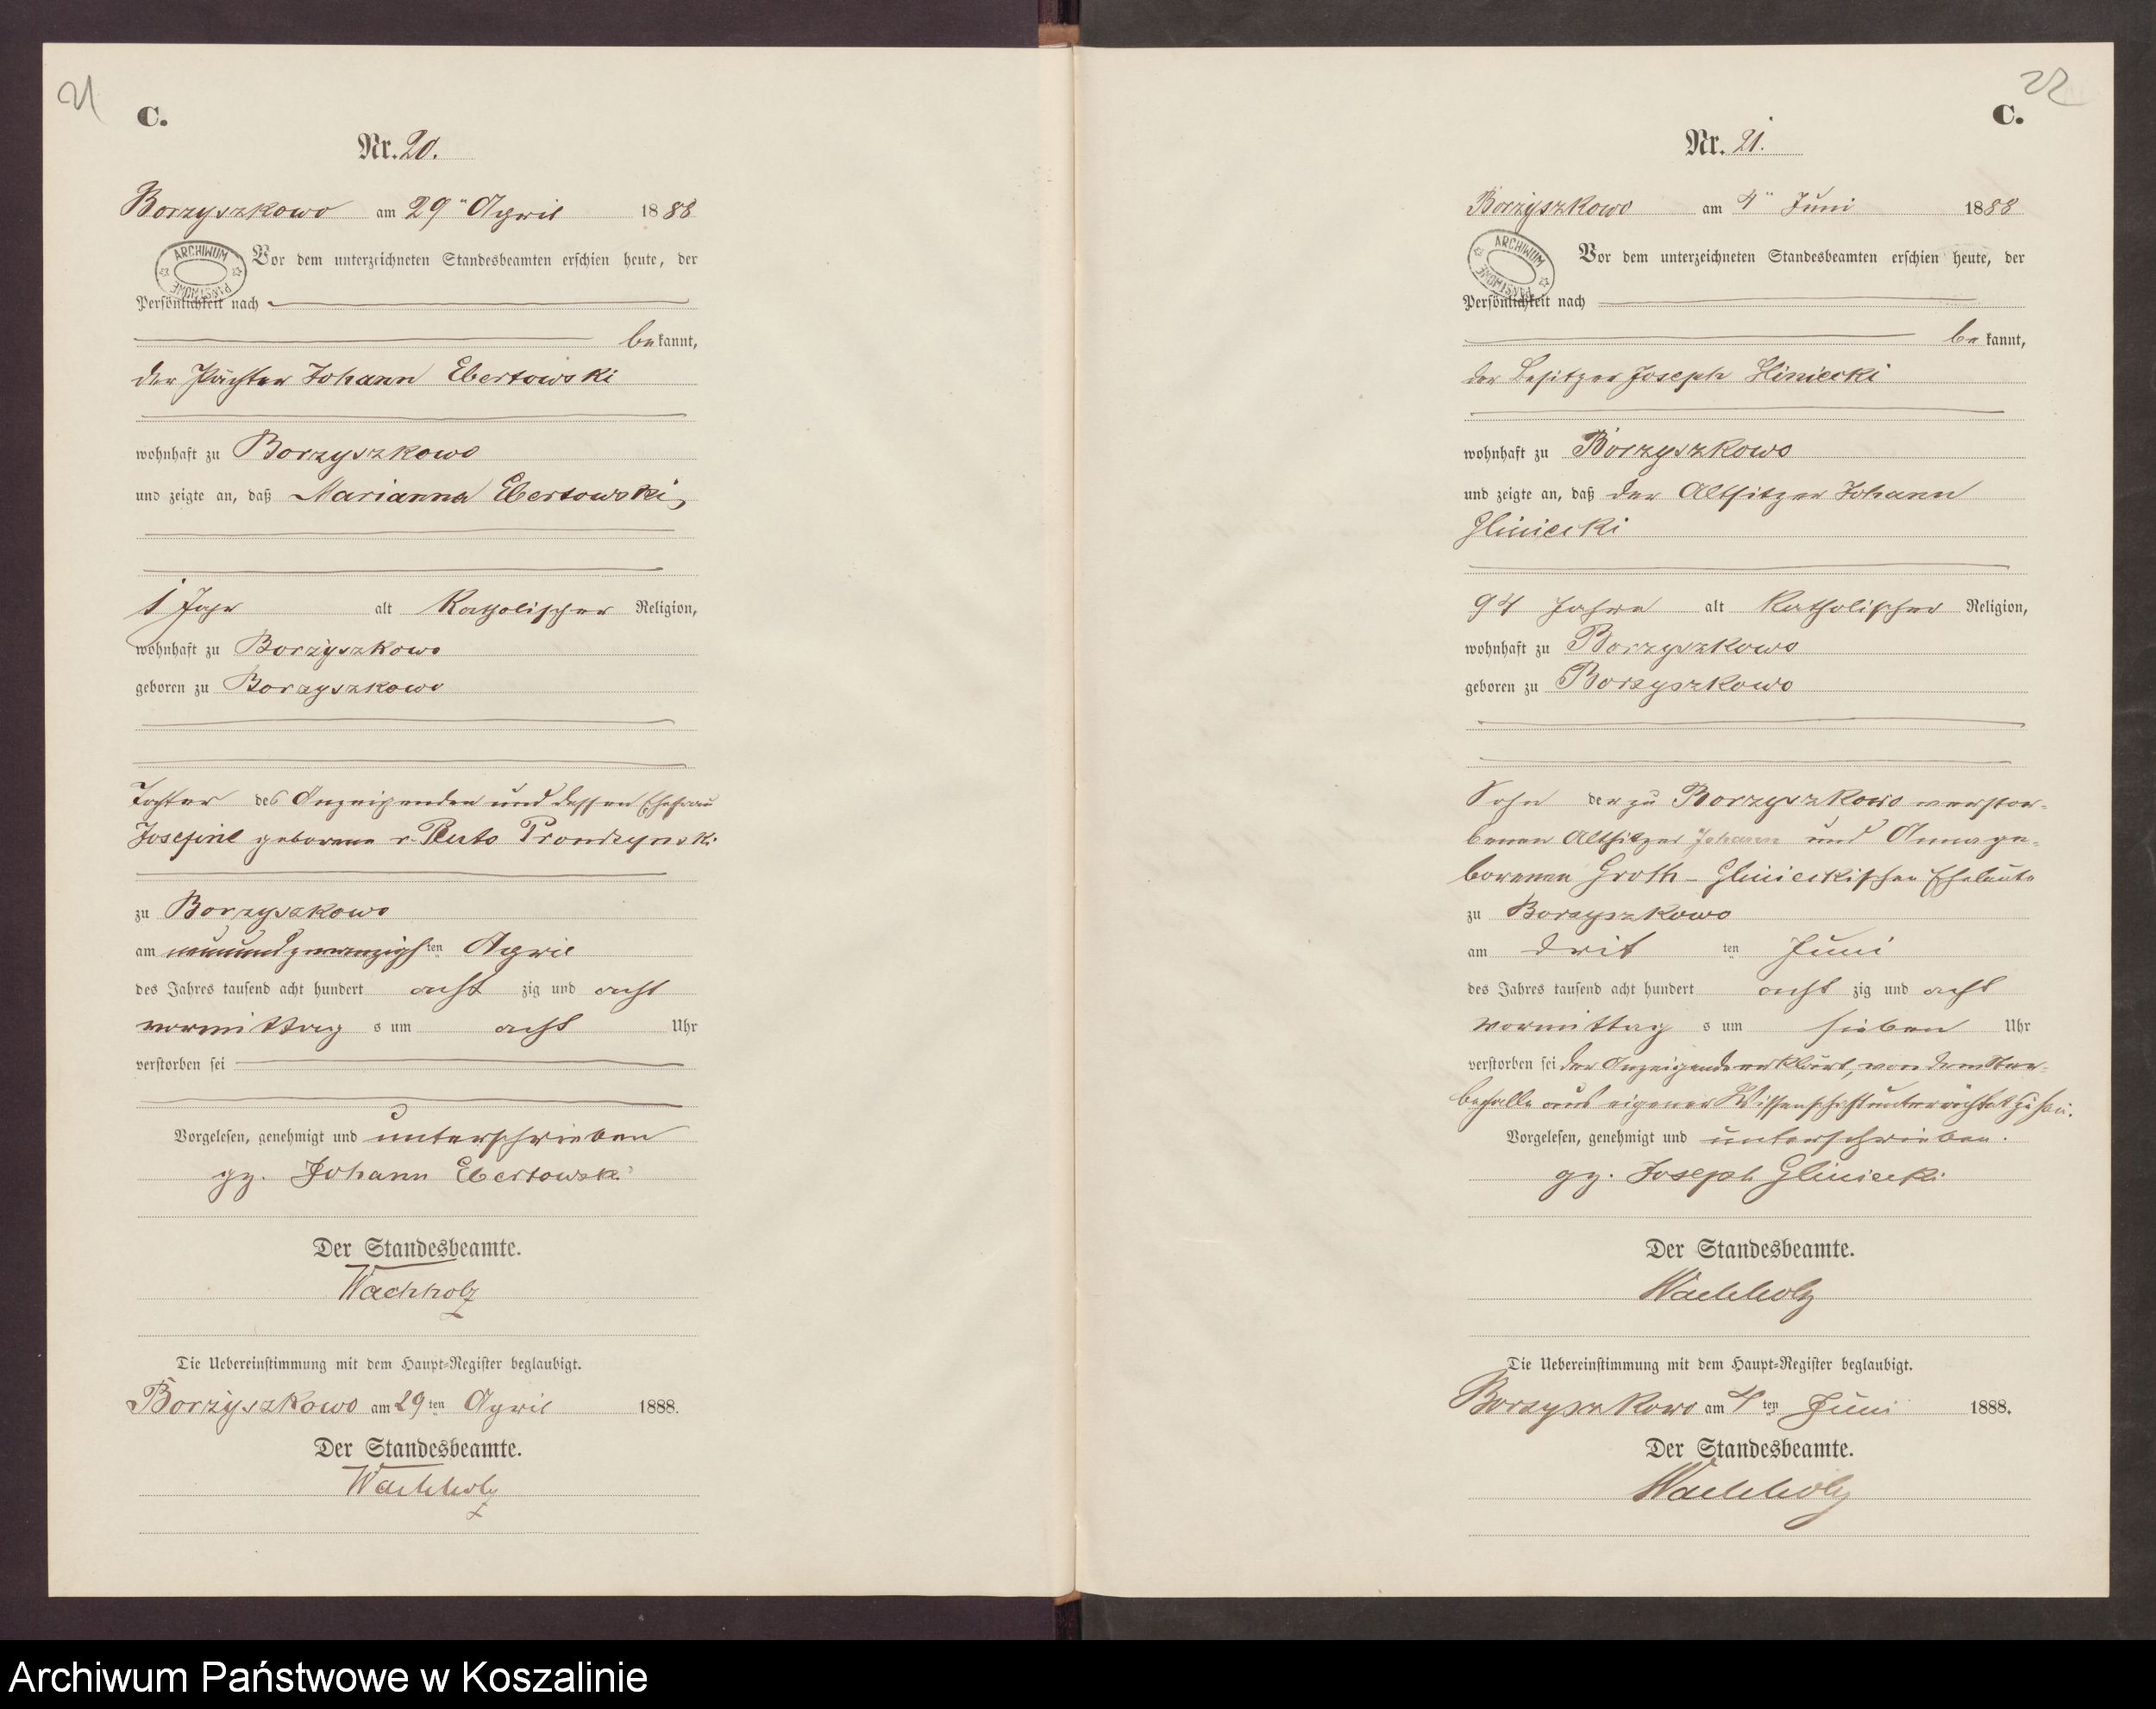 21
C.
Nr. 20.
Borzyszkowo am 29ⁿ April 1888
ARCHIWUM PAŃSTWOWE
Vor dem unterzeichneten Standesbeamten erschien heute, der
Persönlichkeit nach
bekannt,
der Pächter Johann Ebertowski
wohnhaft zu Borzyszkowo
und zeigte an, daß Marianna Ebertowski,
1 Jahr alt Katholischer Religion,
wohnhaft zu Borzyszkowo
geboren zu Borzyszkowo
Tochter des Anzeigenden und dessen Ehefrau
Josefine geborene v. Prondzynski
zu Borzyszkowo
am neunundzwanzigsten April
des Jahres tausend acht hundert achtzig und acht
vormittags um acht Uhr
verstorben sei
Vorgelesen, genehmigt und unterschrieben
gz. Johann Ebertowski
Der Standesbeamte.
Wachholz
Die Uebereinstimmung mit dem Haupt-Register beglaubigt.
Borzyszkowo am 29ten April 1888.
Der Standesbeamte.
Wachholz
22
C.
Nr. 21.
Borzyszkowo am 4ⁿ Juni 1888
ARCHIWUM PAŃSTWOWE
Vor dem unterzeichneten Standesbeamten erschien heute, der
Persönlichkeit nach
bekannt,
der Besitzer Joseph Gliniecki
wohnhaft zu Borzyszkowo
und zeigte an, daß der Altsitzer Johann
Gliniecki
94 Jahre alt Katholischer Religion,
wohnhaft zu Borzyszkowo
geboren zu Borzyszkowo
Sohn der zu Borzyszkowo verstor-
benen Altsitzer Johann und Anna ge-
borenen Groth-Glinieckischen Eheleute
zu Borzyszkowo
am dritten Juni
des Jahres tausend acht hundert achtzig und acht
Vormittags um sieben Uhr
verstorben sei der Anzeigende erklärt, von dem Ster-
befalle aus eigener Wissenschaft unterrichtet zu sein.
Vorgelesen, genehmigt und unterschrieben.
gz. Joseph Gliniecki
Der Standesbeamte.
Wachholz
Die Uebereinstimmung mit dem Haupt-Register beglaubigt.
Borzyszkowo am 4ten Juni 1888.
Der Standesbeamte.
Wachholz
Archiwum Państwowe w Koszalinie